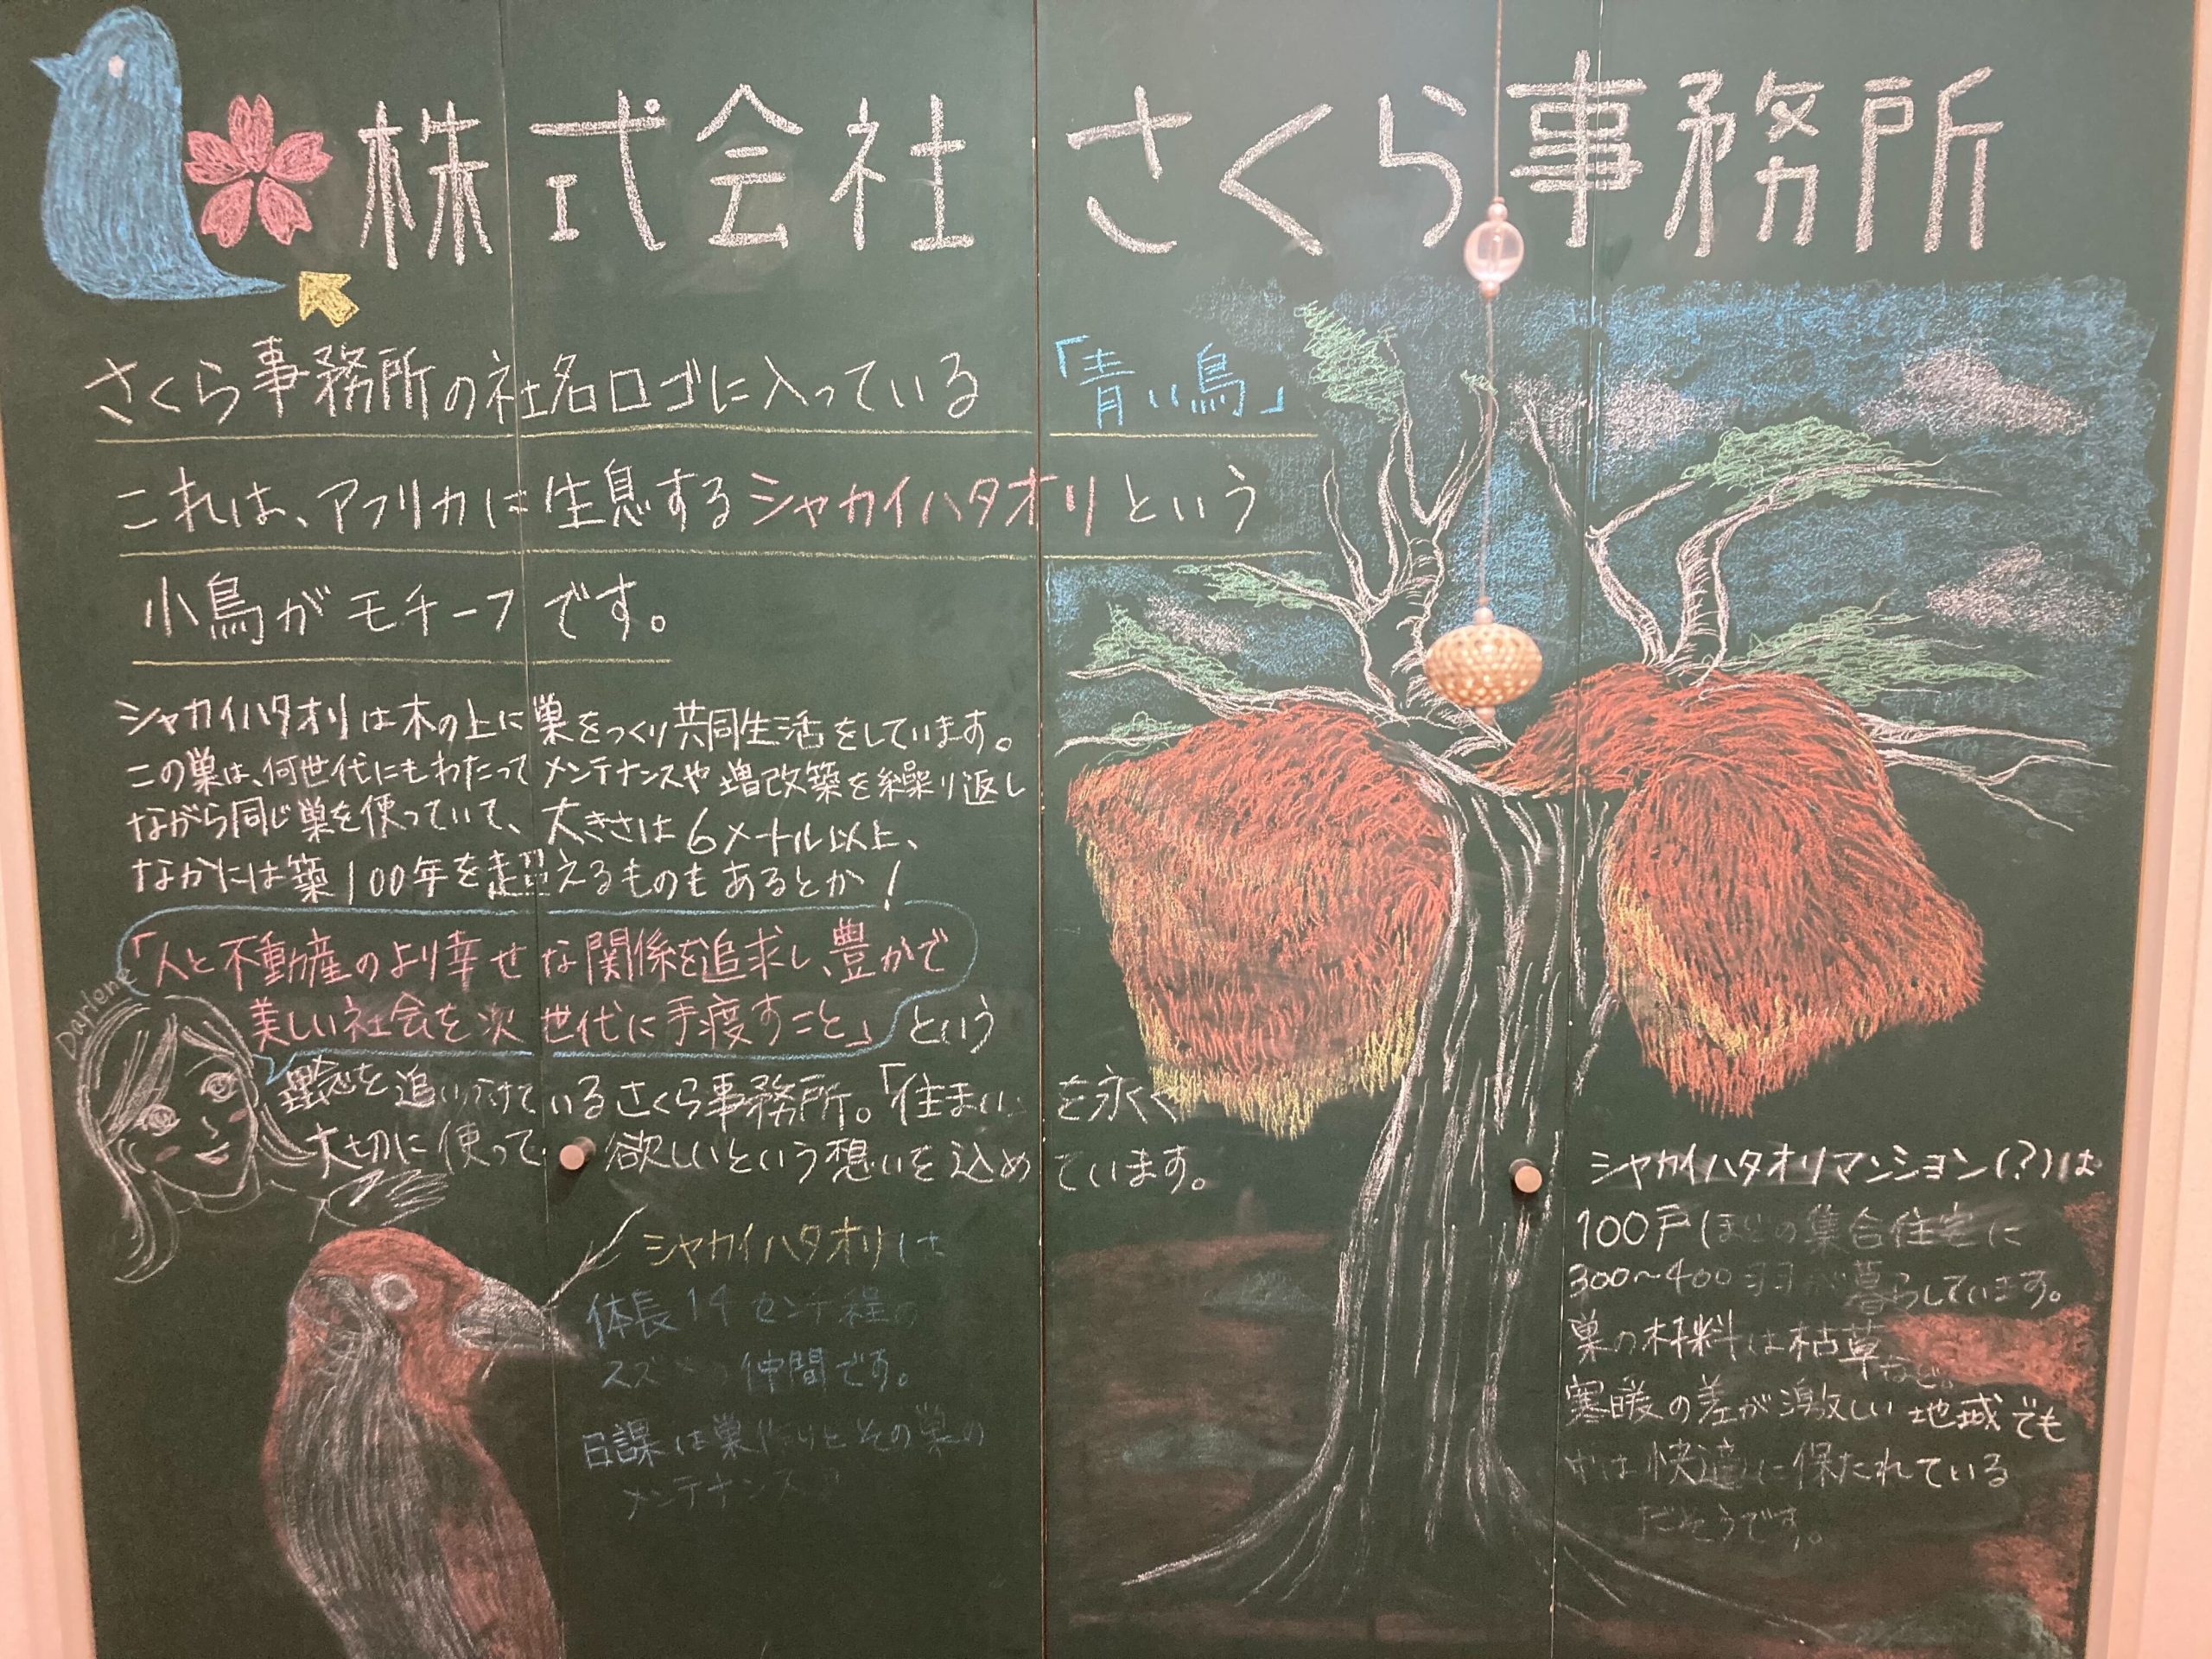 株式会社 さくら事務所
さくら事務所の社名ロゴに入っている「青い鳥」
これは、アフリカに生息するシャカイハタオリという
小鳥がモチーフです。
シャカイハタオリは木の上に巣をつくり共同生活をしています。
この巣は、何世代にもわたってメンテナンスや増改築を繰り返し
ながら同じ巣を使っていて、大きさは6メートル以上、
なかには築100年を超えるものもあるとか!
「人と不動産のより幸せな関係を追求し、豊かで
美しい社会を次世代に手渡すこと」という
理念を追いかけているさくら事務所。「住まい」を永く
大切に使って欲しいという想いを込めています。
シャカイハタオリは
体長14センチ程の
スズメの仲間です。
日課は巣作りとその巣の
メンテナンス
シャカイハタオリマンション(?)は
100戸ほどの集合住宅に
300〜400羽が暮らしています。
巣の材料は枯草など。
寒暖の差が激しい地域でも
中は快適に保たれている
だそうです。